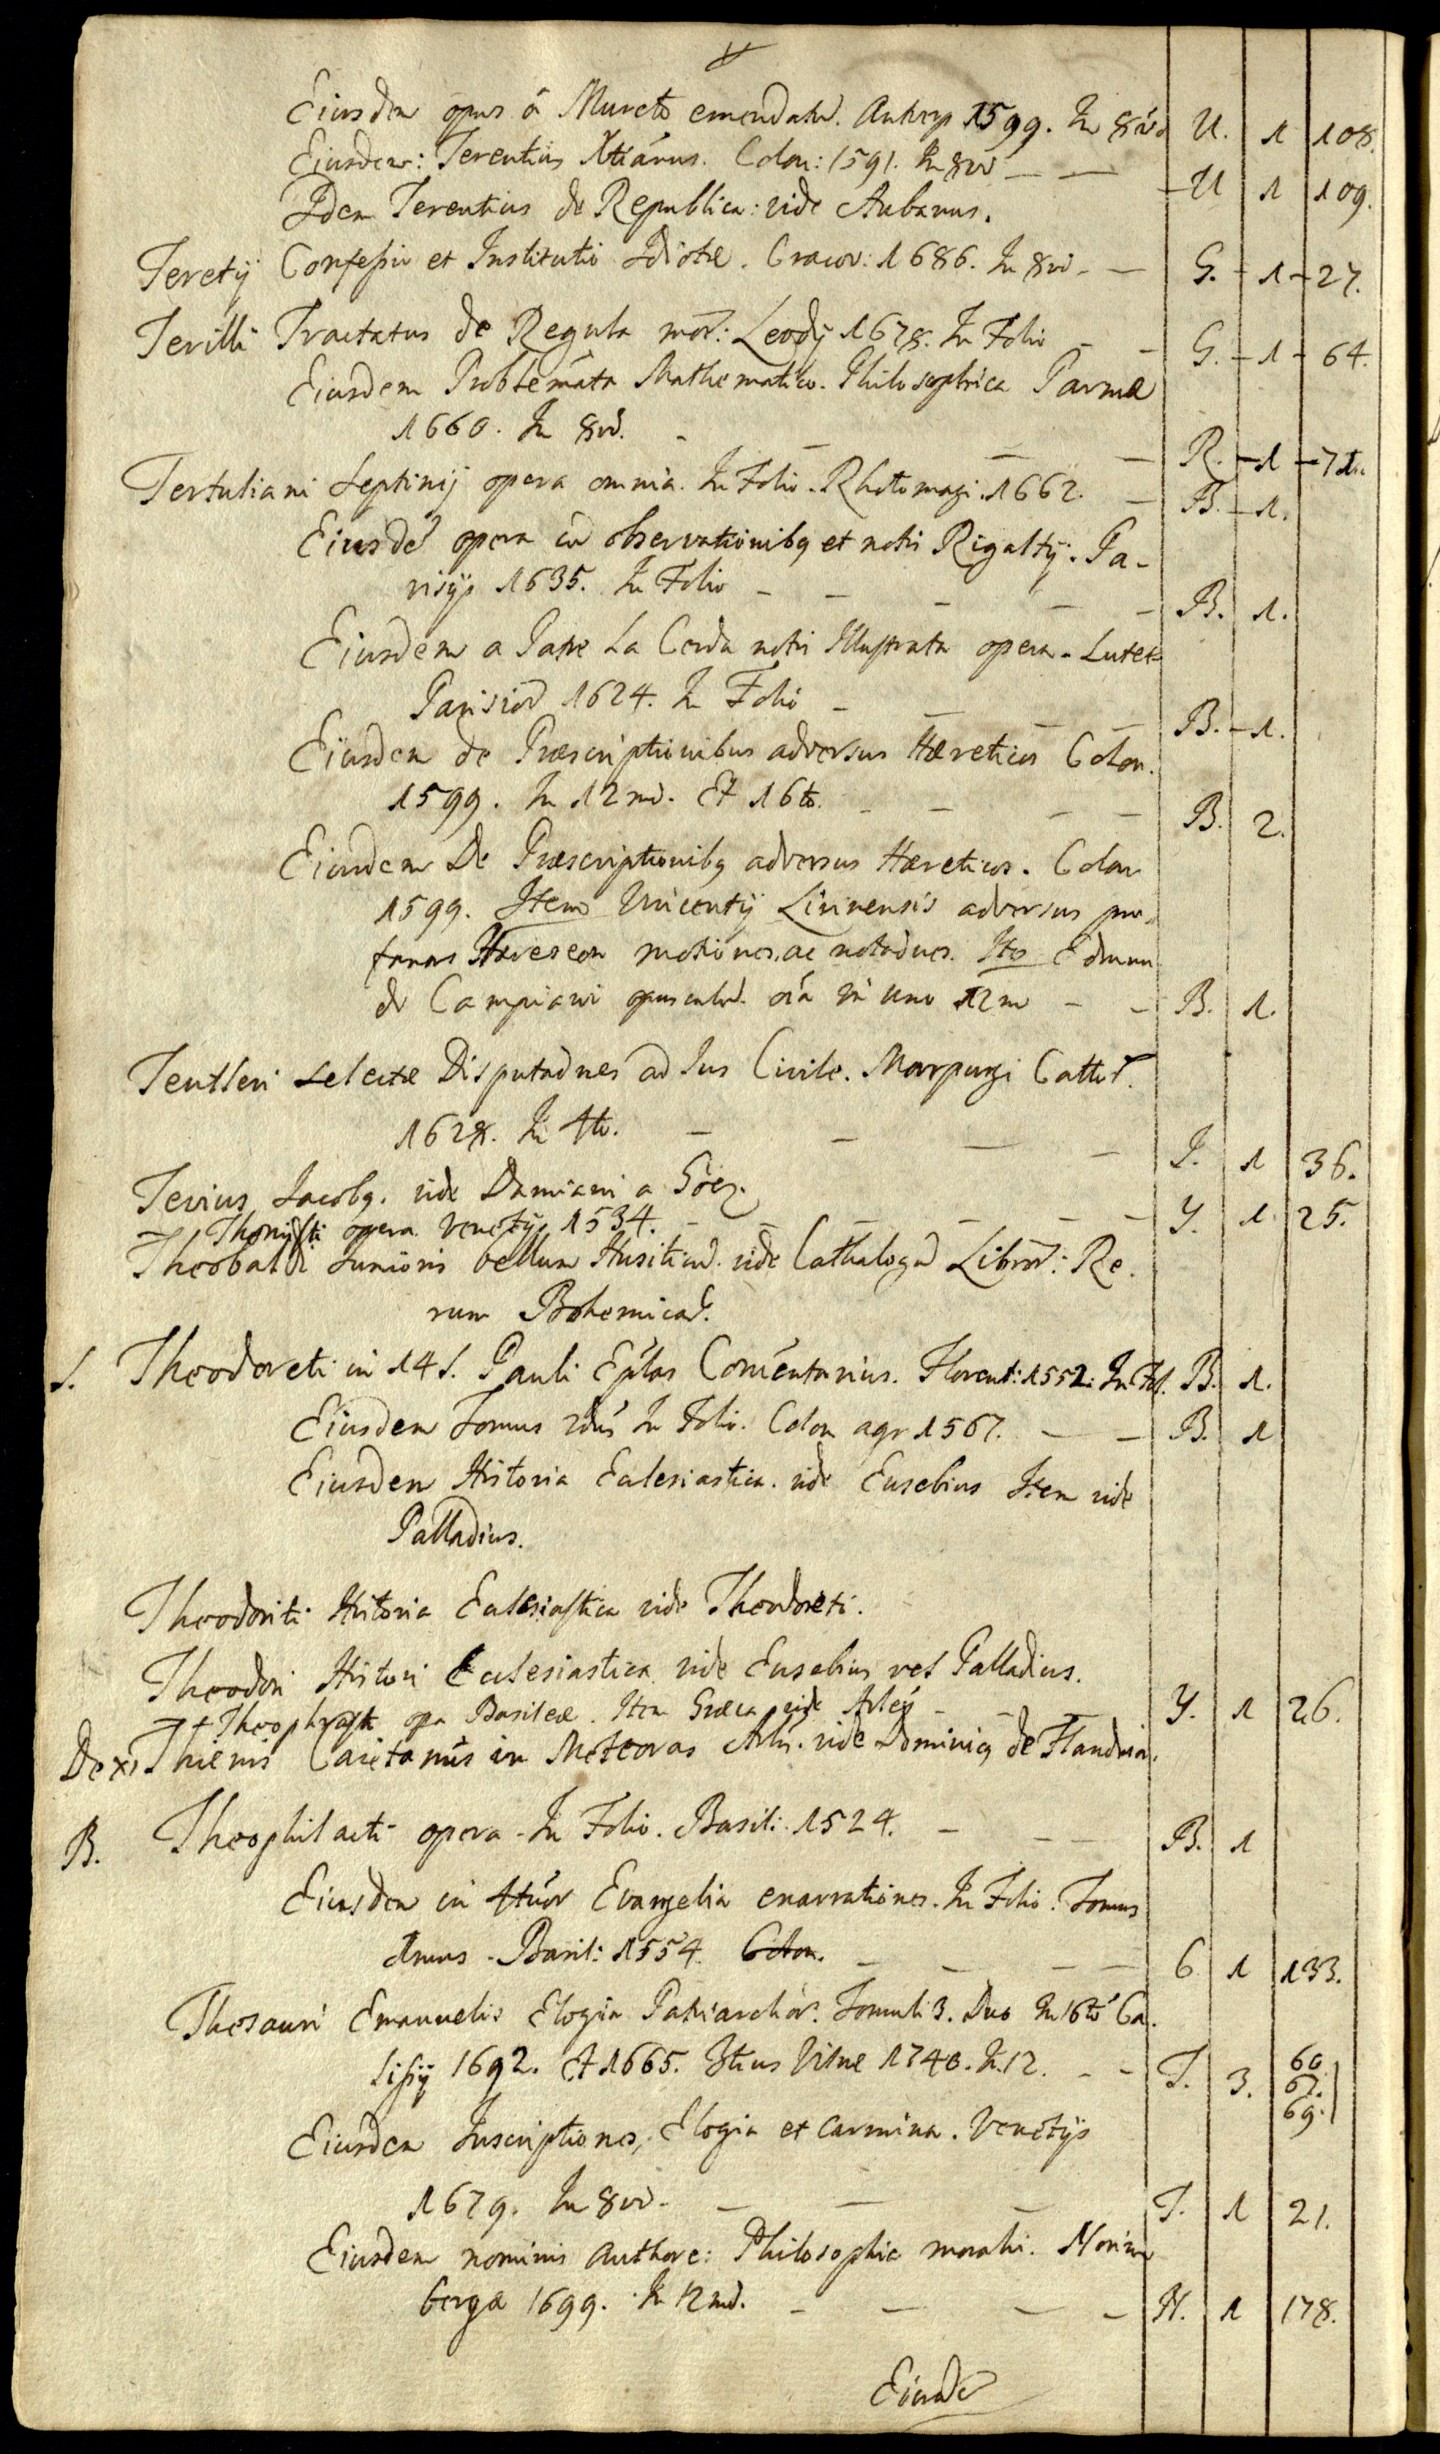 Eiusdem opus à Mureto emendatū. Antverp 1599. In 8vo U. 1 108.
Eiusdem: Terentius Xtiánus. Colon: 1591. In 8vo — — U 1 109.
Idem Terentius de Republica: vide Aubanus.
Teretÿ Confessio et Institutio Idiotæ. Cracov: 1686. In 8vo — — G. 1 27.
Terilli Tractatus de Regula mor: Leodÿ 1678. In Folio — — G. 1 64.
Eiusdem Problemata Mathematico-Philosophica Parmæ
1660. In 8vo. — — — — R. 1
Tertuliani Septimij opera omnia. In Folio. Rhotomagi. 1662. — B. 1.
Eiusdē opera cū observationibq et notis Rigaltÿ. Pa-
risÿs 1635. In Folio — — — — — B. 1.
Eiusdem a Patre La Cerda notis Illustrata opera. Lutet
Parisior 1624. In Folio — — — — B. 1.
Eiusdem de Præscriptionibus adversus Hæreticos Colon.
1599. In 12mo. Et 16to. — — — — B. 2.
Eiusdem De Præscriptionibq adversus Hæreticos. Colon
1599. Item Vincentÿ Lirinensis adversus pro-
fanas Hæreseon motiones ac notaōnes. Itē Edmun
di Campiani opusculū. oīa in uno 12mo — — B. 1.
Teutleri Selectæ Disputaōnes ad Ius Civile. Marpurgi Cattor.
1628. In 4to. — — — — I. 1 36.
Tevius Jacobq. vide Damiani a Góez.
— Thomisti opera Venetÿs 1534. — — — — — — Y. 1 25.
Theobaldi Junioris bellum Husiticū. vide Cathalogū Libror: Re-
rum Bohemicar.
S. Theodoreti in 14 S. Pauli Eplas Comentarius. Florent: 1552: In Fol. B. 1.
Eiusdem Tomus 2dus In Folio. Colon agr 1567. — — B. 1
Eiusdem Historia Eclesiastica. vide Eusebius Item vide
Palladius.
Theodoriti Historia Eclesiastica vide Theodoreti.
Theodori Histori Eclesiastica vide Eusebius vel Palladius.
Theophrasti opa Basileæ. Item Græca vide — — — Y. 1 26.
Thienis Caietanus in Meteoras Arls. vide Dominicq de Flandria.
B. Theophilacti opera. In Folio. Basil: 1524. — — — B. 1
Eiusdem in 4tuor Evangelia enarrationes. In Folio. Tomus
Basil: 1554. Colon. — — — — 6 1 133.
Thesauri Emanuelis Elogia Patriarchár. Tomuli 3. Duo In 16to Ca-
lissÿ 1692. Et 1665. 3tius Vilnæ 1740. In 12. — — T. 3. 60. 67. 69.
Eiusdem Inscriptiones, Elogia et Carmina. Venetÿs
1679. In 8vo. — — — T. 1 21.
Eiusdem nominis Authore: Philosophia moralis. Norim
bergæ 1699. In 12mo. — — — — H. 1 178.
Eiusdē